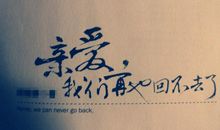 亲爱,
我们再也回不去了
we can never go back.